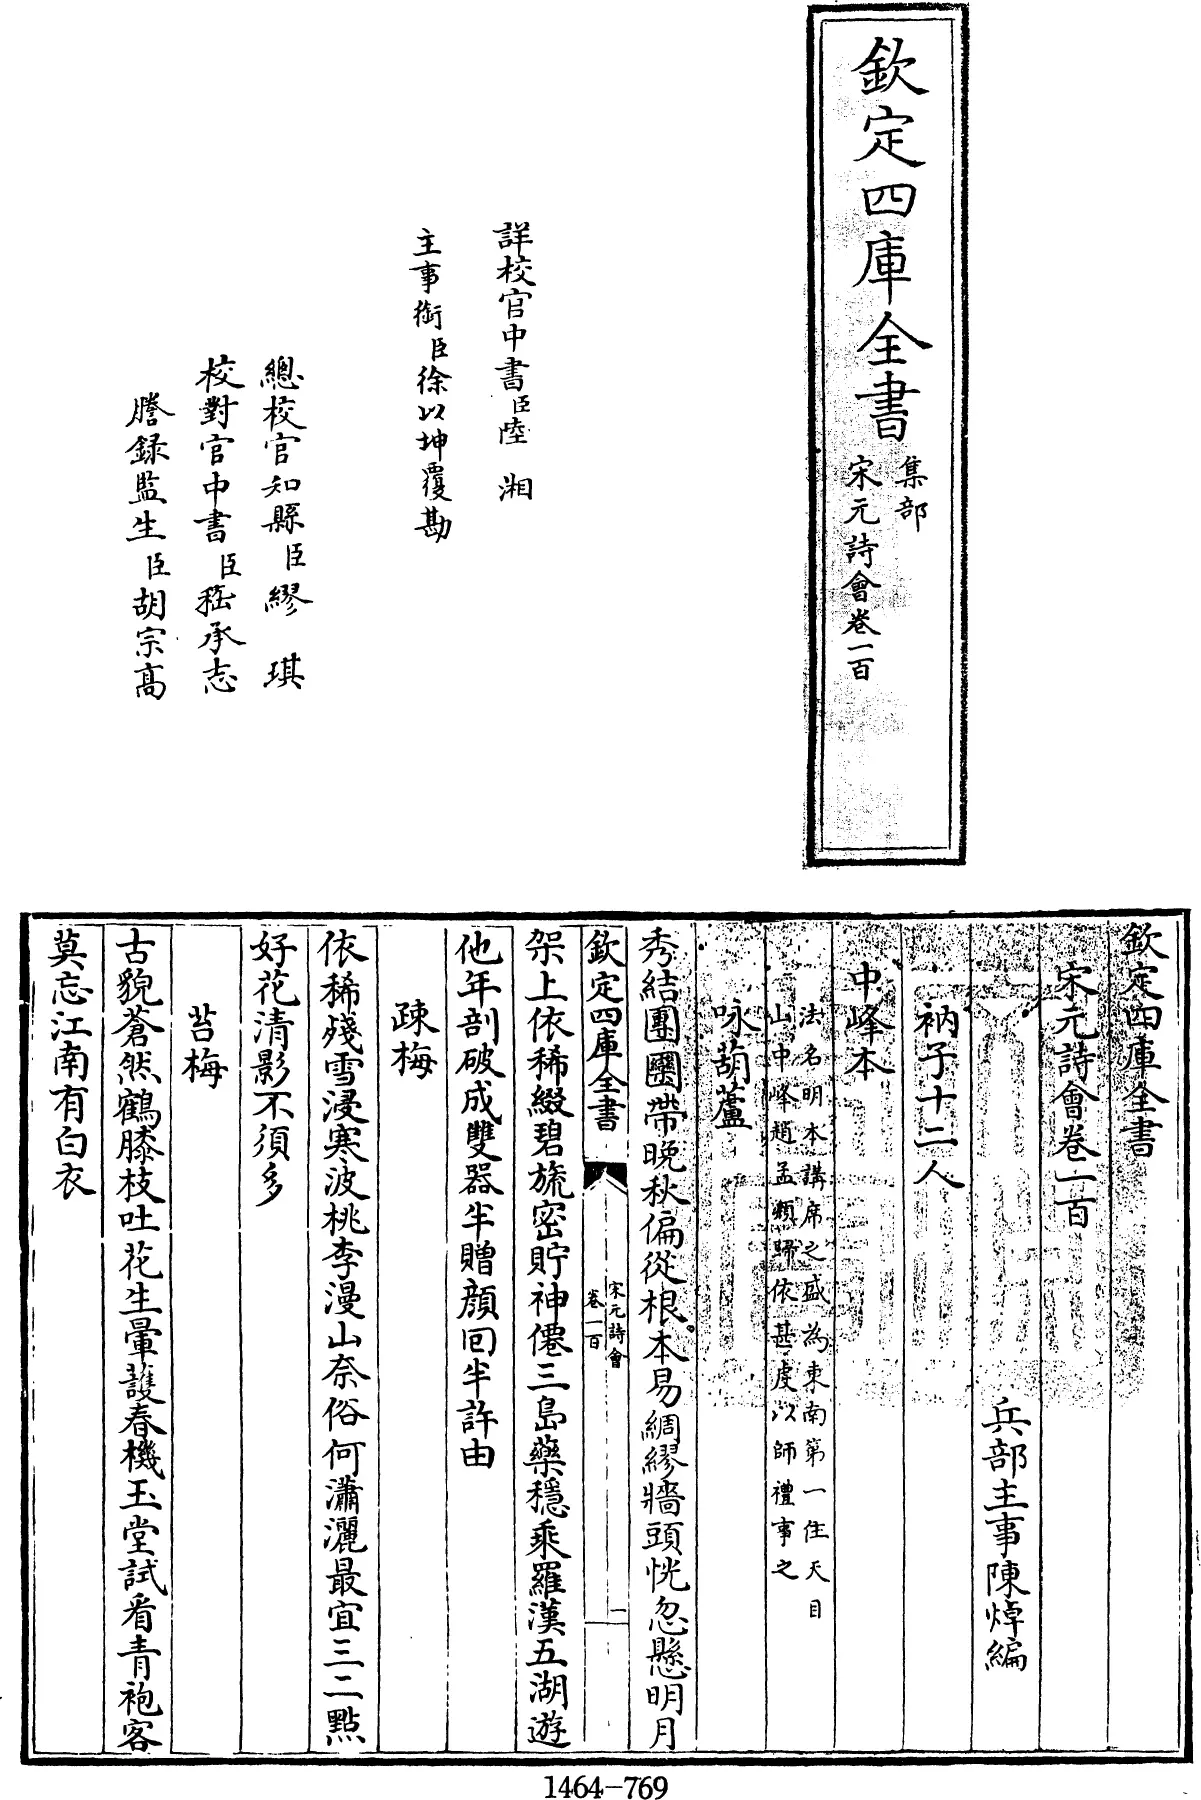 欽定四庫全書
集部
宋元詩會卷一百
詳校官中書臣陸湘
主事銜臣徐以坤覆勘
總校官知縣臣繆琪
校對官中書臣嵇承志
謄録監生臣胡宗高
欽定四庫全書
宋元詩會卷一百
兵部主事陳焯編
衲子十二人
中峰本
法名明本講席之盛為東南第一住天目
山中峰趙孟頫歸依甚虔以師禮事之
咏葫蘆
秀結團團帶晚秋偏從根本易綢繆牆頭恍忽懸明月
架上依稀綴碧旒密貯神僊三島藥穩乘羅漢五湖遊
他年剖破成雙器半贈顔回半許由
疎梅
依稀殘雪浸寒波桃李漫山奈俗何瀟灑最宜三二點
好花清影不須多
苔梅
古貌蒼然鶴膝枝吐花生暈護春機玉堂試看青袍客
莫忘江南有白衣
欽定四庫全書
宋元詩會
卷一百
一
1464-769